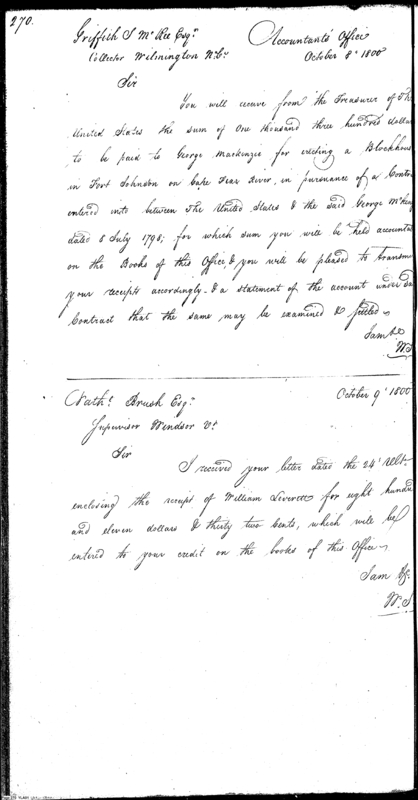 270.
Griffith J McRee Esqr Accountants Office
Collector Wilmington N.Ca October 8th 1800
Sir
You will receive from the Treasurer of Th
United States the sum of One thousand three hundred dollar
to be paid to George Mackenzie for erecting a Blockhous
in Fort Johnson on Cape Fear River, in pursuance of a Contra
entered into between The United States & the said George McKen
dated 8 July 1798; for which sum you will be held accountab
on the Books of this Office, & you will be pleased to transm
your receipts accordingly - & a statement of the account under
Contract that the same may be examined & settled
I am &c
W.S
Nathl Brush Esqr October 9th 1800
Supervisor Windsor Vt
Sir
I received your letter dated the 24th Ulto
enclosing the receipt of William Leverett for eight hundr
and eleven dollars & thirty two Cents, which will be
entered to your credit on the books of this Office
I am &c
W.S